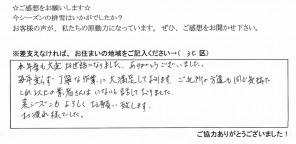 ☆ご感想をお願いします☆
今シーズンの排雪はいかがでしたか？
お客様の声が、私たちの原動力になっています。ぜひ、ご感想をお聞かせ下さい。
※差支えなければ、お住まいの地域をご記入ください→（ 北 区）
本年度も大変お世話になりました。ありがとうございました。
毎年変らず丁寧な作業に大満足しております。ご近所の方達も同じ気持で
これ以上の業者さんはいないと話しておりました。
来シーズンもよろしくお願い致します。
お疲れ様でした。
ご協力ありがとうございました！